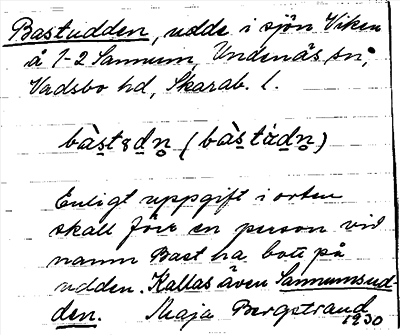 Bastudden, udde i sjön Viken
å 1-2 Sannum, Undenäs sn,
Vadsbo hd, Skarab. l.
bàstɛdn̥ (bàstùdn̥)
Enligt uppgift i orten
skall förr en person vid
namn Bast ha bott på
udden. Kallas även Sannumsud-
den. Maja Bergstrand
1930